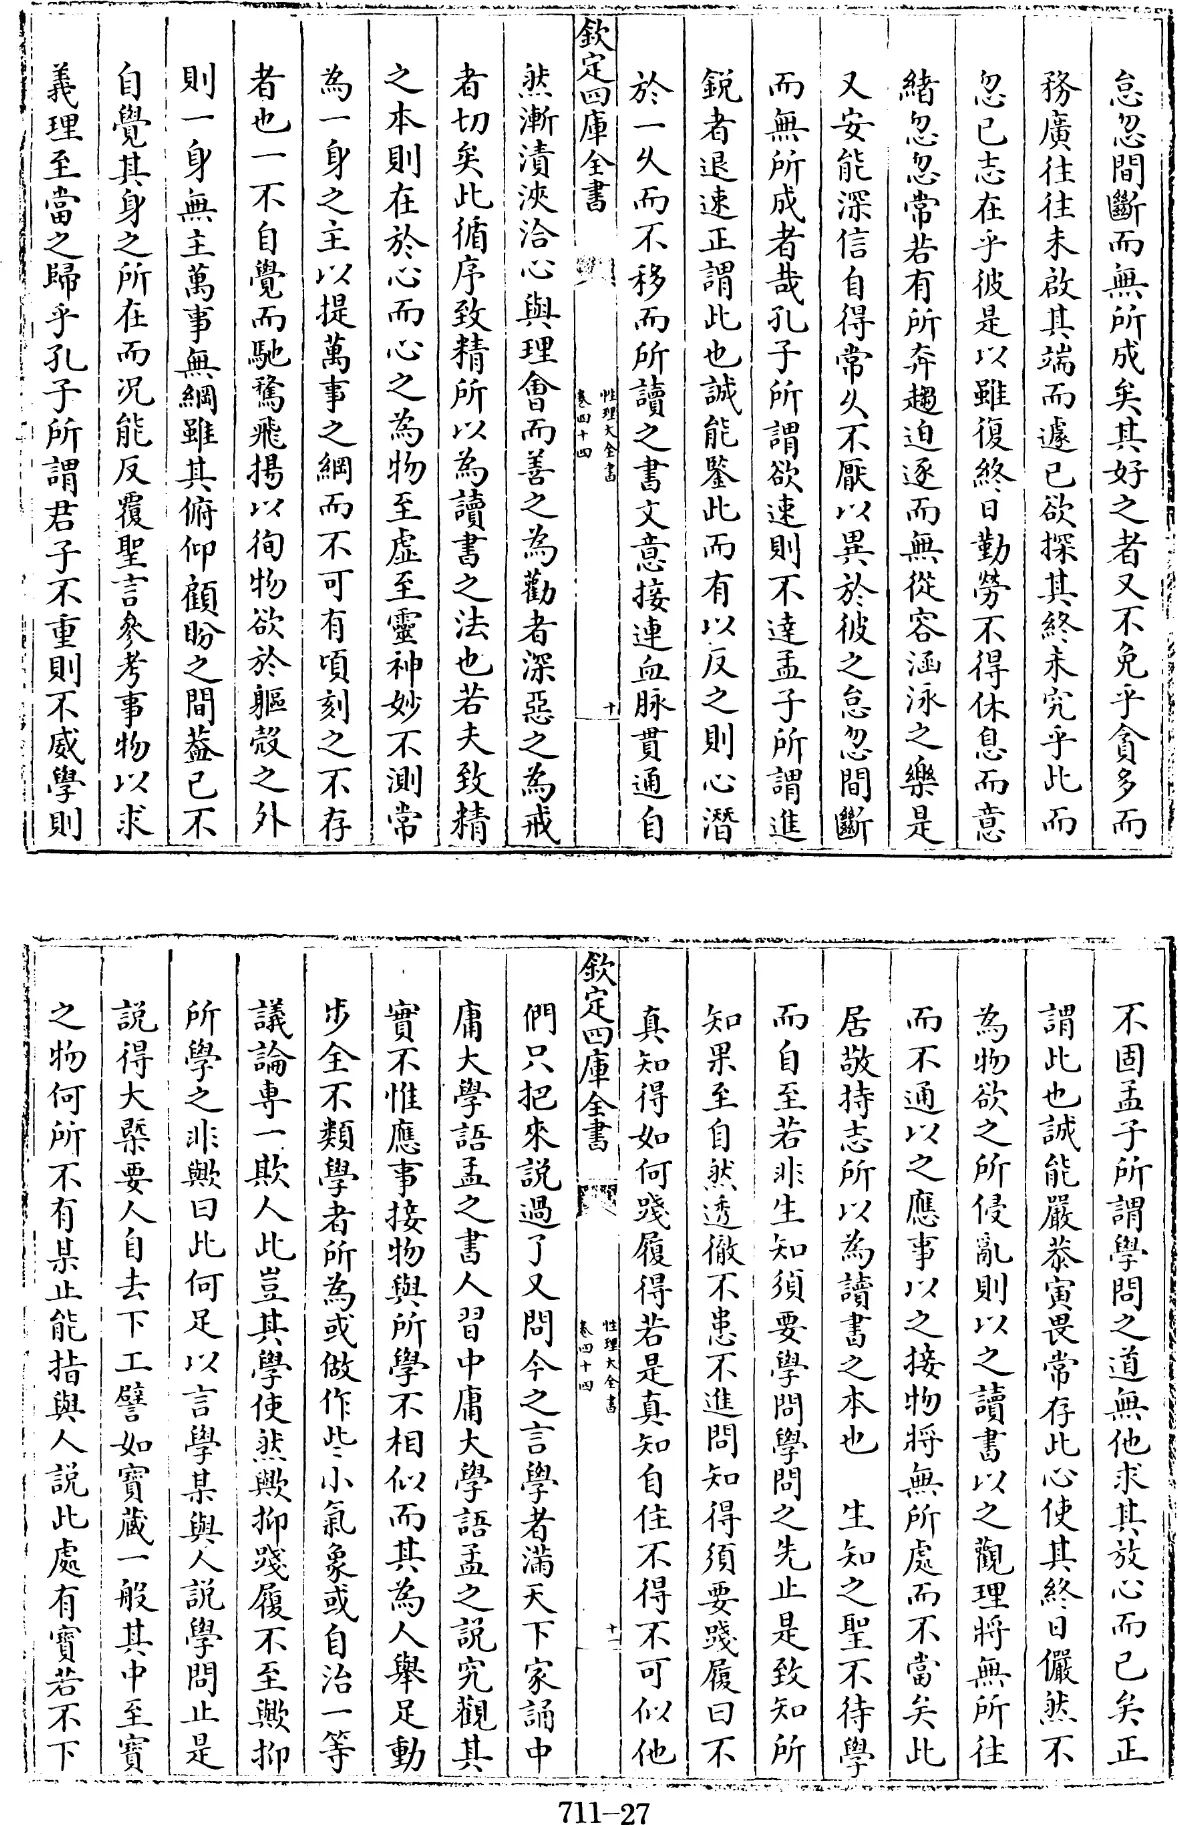 怠忽間斷而無所成矣其好之者又不免乎貪多而
務廣往往未啟其端而遽已欲探其終未究乎此而
忽已志在乎彼是以雖復終日勤勞不得休息而意
緒怱怱常若有所奔趨迫逐而無從容涵泳之樂是
又安能深信自得常久不厭以異於彼之怠忽間斷
而無所成者哉孔子所謂欲速則不達孟子所謂進
鋭者退速正謂此也誠能鑒此而有以反之則心潛
於一久而不移而所讀之書文意接連血脉貫通自
欽定四庫全書
性理大全書
卷四十四
十
然漸漬浹洽心與理會而善之為勸者深惡之為戒
者切矣此循序致精所以為讀書之法也若夫致精
之本則在於心而心之為物至虛至靈神妙不測常
為一身之主以提萬事之綱而不可有頃刻之不存
者也一不自覺而馳騖飛揚以徇物欲於軀殼之外
則一身無主萬事無綱雖其俯仰顧盼之間葢已不
自覺其身之所在而况能反覆聖言參考事物以求
義理至當之歸乎孔子所謂君子不重則不威學則
不固孟子所謂學問之道無他求其放心而已矣正
謂此也誠能嚴恭寅畏常存此心使其終日儼然不
為物欲之所侵亂則以之讀書以之觀理將無所往
而不通以之應事以之接物將無所處而不當矣此
居敬持志所以為讀書之本也　生知之聖不待學
而自至若非生知須要學問學問之先止是致知所
知果至自然透徹不患不進問知得須要踐履曰不
真知得如何踐履得若是真知自住不得不可似他
欽定四庫全書
性理大全書
卷四十四
十一
們只把來説過了又問今之言學者滿天下家誦中
庸大學語孟之書人習中庸大學語孟之説究觀其
實不惟應事接物與所學不相似而其為人舉足動
步全不類學者所為或做作些小氣象或自治一等
議論専一欺人此豈其學使然歟抑踐履不至歟抑
所學之非歟曰此何足以言學某與人説學問止是
説得大槩要人自去下工譬如寶藏一般其中至寳
之物何所不有某止能指與人説此處有寳若不下
711-27